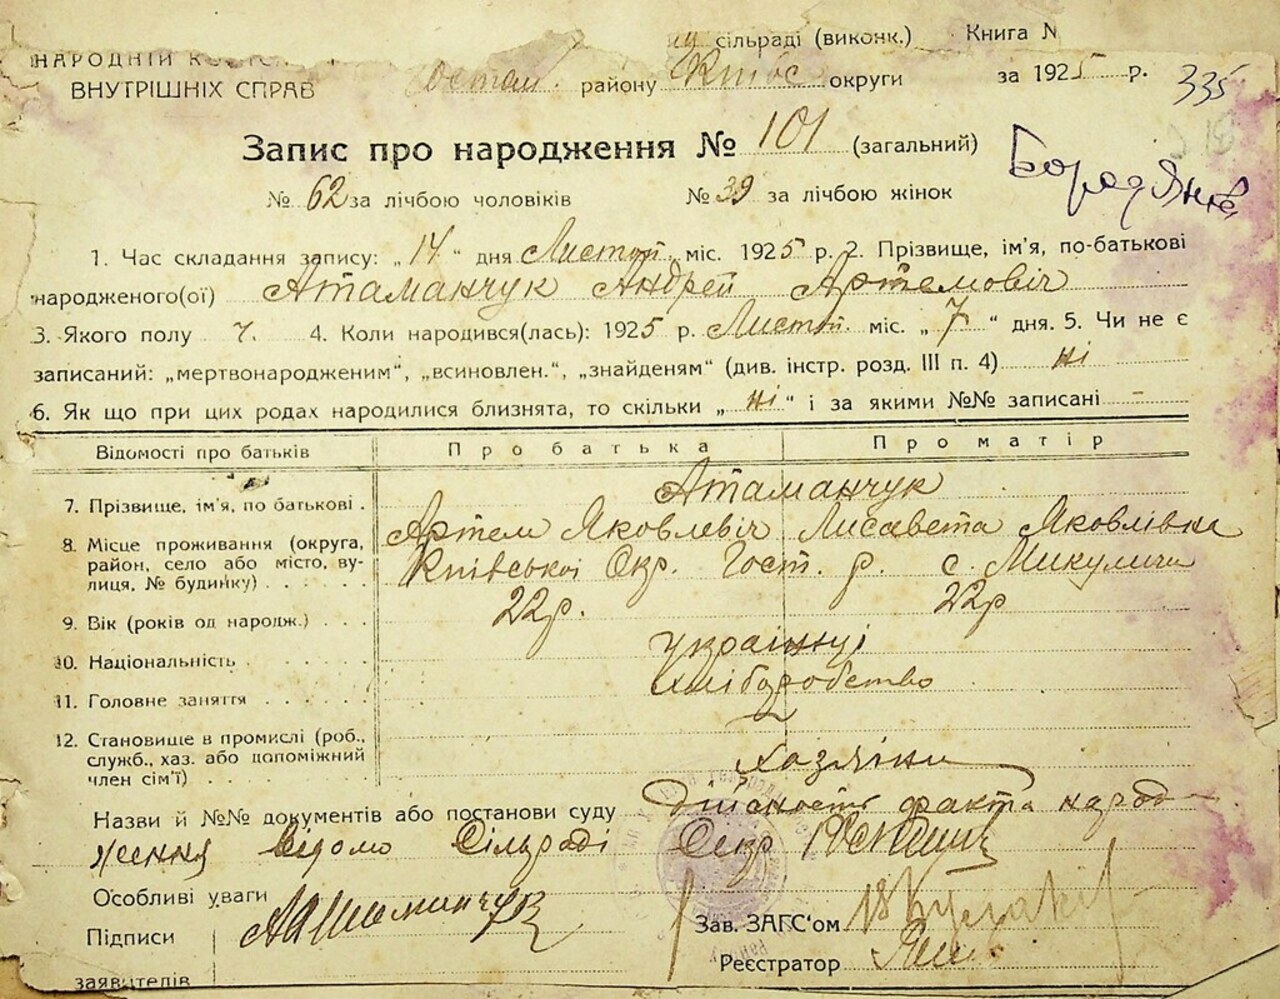 сільраді (виконк.) Книга №
НАРОДНІЙ
ВНУТРІШНІХ СПРАВ Гостом. району Київс округи за 1925 р. 335
Запис про народження № 101 (загальний)
Бородянка
№ 62 за лічбою чоловіків № 39 за лічбою жінок
1. Час складання запису: „14“ дня Листоп. міс. 1925 р. 2. Прізвище, ім'я, по-батькові
народженого(ої) Атаманчук Андрей Артемовіч
3. Якого полу ч. 4. Коли народився(лась): 1925 р. Листоп. міс. „7“ дня. 5. Чи не є
записаний: „мертвонародженим“, „всиновлен.“, „знайденям“ (див. інстр. розд. III п. 4) ні
6. Як що при цих родах народилися близнята, то скільки „ні“ і за якими №№ записані -
Відомості про батьків Про батька Про матір
7. Прізвище, ім'я, по батькові . Атаманчук
Артем Яковлевіч Лисавета Яковлівна
8. Місце проживання (округа, район, село або місто, вулиця, № будинку) . . . . Київської Окр. Гост. р. с. Микуличи
9. Вік (років од народж.) . . . 22р. 22р
10. Національність . . . . . українці
11. Головне заняття . . . . . . хліборобство
12. Становище в промислі (роб., служб., хаз. або допоміжний член сім'ї) . . . . . . Хазяїни
Назви й №№ документів або постанови суду Дійсность факта народ-
жения відомо Сільраді Секр
Особливі уваги
Підписи Атаманчук Зав. ЗАГС'ом
заявителів Реєстратор